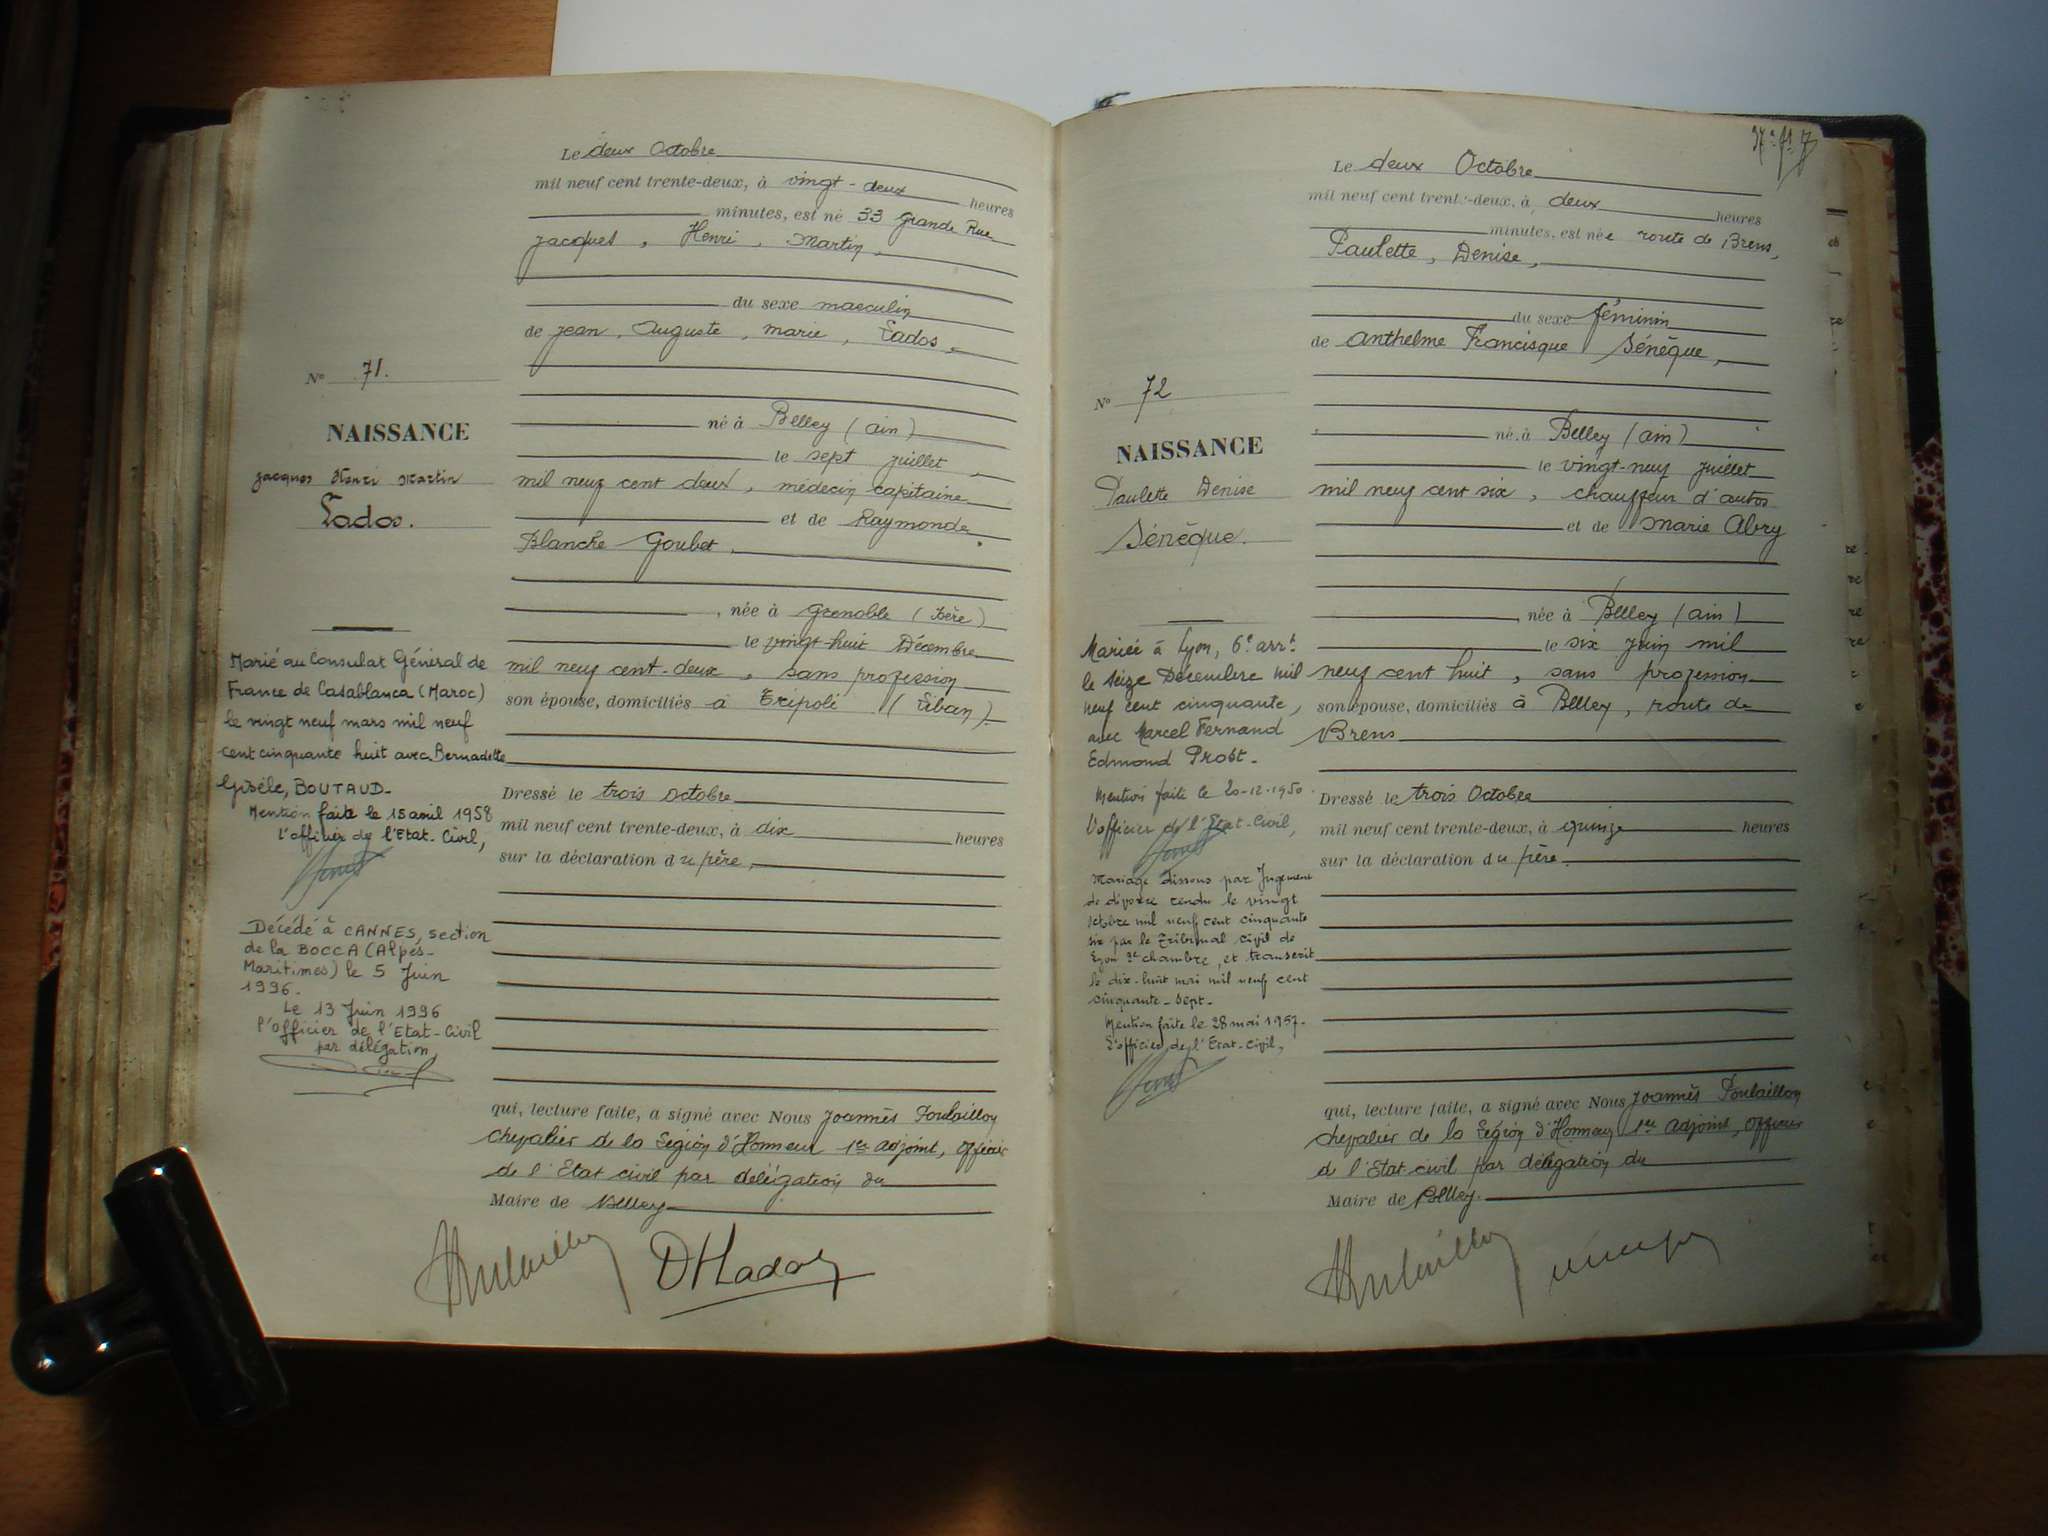 Le deux Octobre
mil neuf cent trente-deux, à vingt-deux heures
minutes, est né 33 Grande Rue
Jacques, Henri, Martin,
du sexe masculin
de Jean, Auguste, Marie, Lados,
né à Belley (Ain)
le sept Juillet
mil neuf cent deux, médecin capitaine
et de Raymonde
Blanche Goubet,
, née à Grenoble (Isère)
le vingt-huit Décembre
mil neuf cent-deux, sans profession
son épouse, domiciliés à Tripoli (Liban)
Dressé le trois Octobre
mil neuf cent trente-deux, à dix heures
sur la déclaration du père,
qui, lecture faite, a signé avec Nous Joannès Poulaillon
Chevalier de la Légion d'Honneur 1er adjoint, Officier
de l'Etat civil par délégation du
Maire de Belley
N° 71.
NAISSANCE
Jacques Henri Martin
Lados.
Marié au Consulat Général de
France de Casablanca (Maroc)
le vingt neuf mars mil neuf
cent cinquante huit avec Bernadette
Gisèle, BOUTAUD_
Mention faite le 15 avril 1958
L'officier de l'Etat-Civil,
Décédé à CANNES, section
de la BOCCA (Alpes-
Maritimes) le 5 Juin
1996.
Le 13 Juin 1996
l'Officier de l'Etat-Civil
par délégation,
Le deux Octobre
mil neuf cent trente-deux, à deux heures
minutes, est née route de Brens,
Paulette, Denise,
du sexe féminin
de Anthelme Francisque Sénèque,
né à Belley (Ain)
le vingt-neuf Juillet
mil neuf cent six, chauffeur d'autos
et de Marie Abry
, née à Belley (Ain)
le six Juin mil
neuf cent huit, sans profession
son épouse, domiciliés à Belley, route de
Brens
Dressé le trois Octobre
mil neuf cent trente-deux, à quinze heures
sur la déclaration du père.
qui, lecture faite, a signé avec Nous Joannès Poulaillon
Chevalier de la Légion d'Honneur 1er adjoint, Officier
de l'Etat civil par délégation du
Maire de Belley.
N° 72
NAISSANCE
Paulette Denise
Sénèque.
Mariée à Lyon, 6e arrt
le seize Décembre mil
neuf cent cinquante,
avec Marcel Fernand
Edmond Prost.
Mention faite le 20-12-1950.
L'officier de l'Etat-Civil,
Mariage dissous par Jugement
de divorce rendu le vingt
octobre mil neuf cent cinquante
six par le Tribunal civil de
Lyon chambre, et transcrit
le dix-huit mai mil neuf cent
cinquante-sept.
Mention faite le 28 mai 1957.
L'officier de l'Etat-Civil,